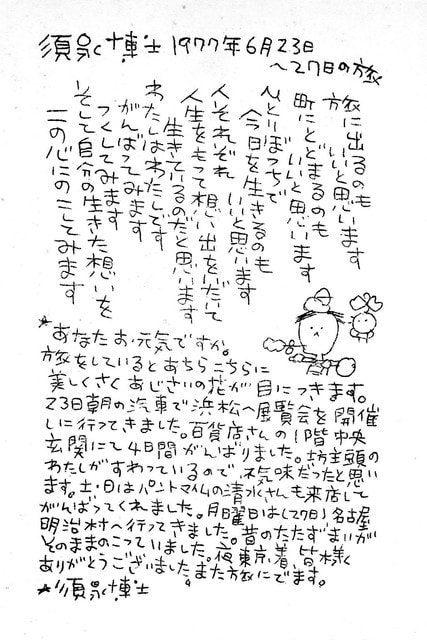 須永博士 1977年6月23日
〜27日の旅
旅に出るのも
いいと思います
町にとどまるのも
いいと思います
ひとりぼっちで
今日を生きるのも
いいと思います
人それぞれ
人生をもって想い出をいだいて
生きているのだと思います
わたしはわたしです
がんばってみます
つくしてみます
そして自分の生きた想いを
この心にのこしてみます
*あなたお元気ですか。
旅をしているとあちらこちらに
美しくさくあじさいの花が目につきます。
23日朝の汽車で浜松へ展覧会を開催
しに行ってきました。百貨店さんの1階中央
玄関にて4日間がんばりました。坊主頭の
わたしがすわっているので、不気味だったと思い
ます。土・日はパントマイムの清水さんも来店して
がんばってくれました。月曜日は(27日)名古屋
明治村へ行ってきました。昔のたたずまいが
そのままのこっていました。夜東京着、皆様
ありがとうございました。また旅にでます。
*須永博士